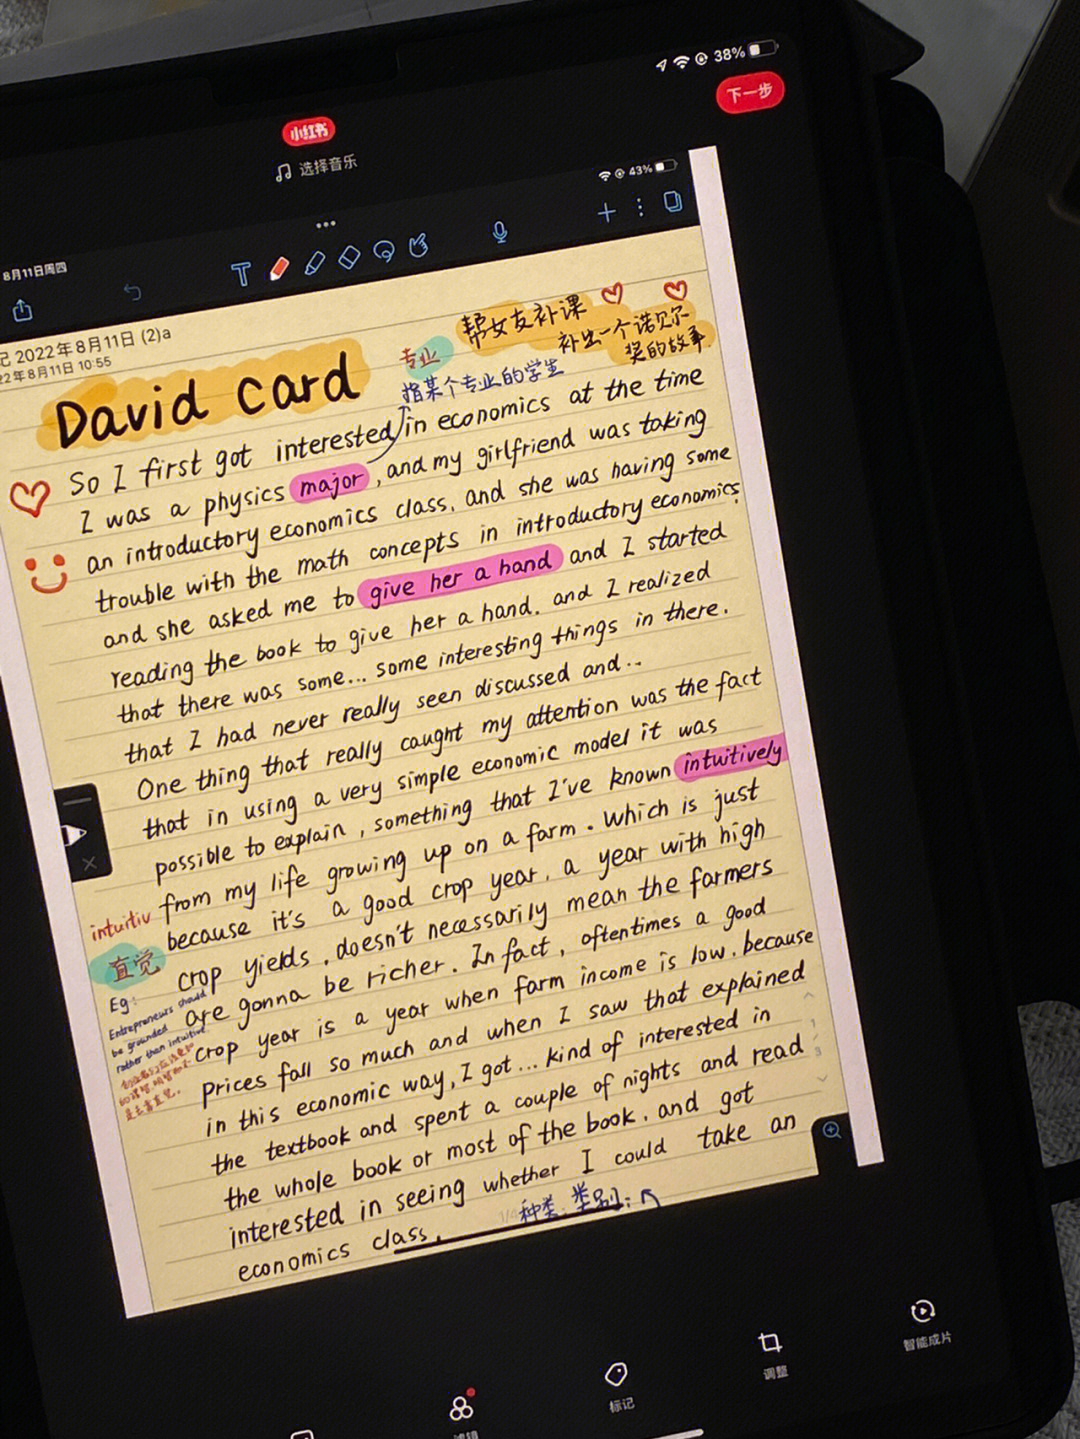 38%
下一步
小红书
选择音乐
43%
8月11日周四
T
记 2022年8月11日 (2)a
22年8月11日 10:55
帮女友补课
补出一个诺贝尔
奖的故事
专业
指某个专业的学生
David Card
So I first got interested in economics at the time
I was a physics major, and my girlfriend was taking
an introductory economics class, and she was having some
trouble with the math concepts in introductory economics,
and she asked me to give her a hand and I started
reading the book to give her a hand. and I realized
that there was some... some interesting things in there.
that I had never really seen discussed and..
One thing that really caught my attention was the fact
that in using a very simple economic model it was
possible to explain, something that I've known intuitively
from my life growing up on a farm. Which is just
because it's a good crop year, a year with high
crop yields, doesn't necessarily mean the farmers
are gonna be richer. In fact, oftentimes a good
crop year is a year when farm income is low. because
prices fall so much and when I saw that explained
in this economic way, I got... kind of interested in
the textbook and spent a couple of nights and read
the whole book or most of the book. and got
interested in seeing whether I could take an
economics class.
intuitiv
直觉
Eg:
Entrepreneurs should
be grounded
rather than intuitive.
种类; 类别;
智能成片
调整
标记
滤镜